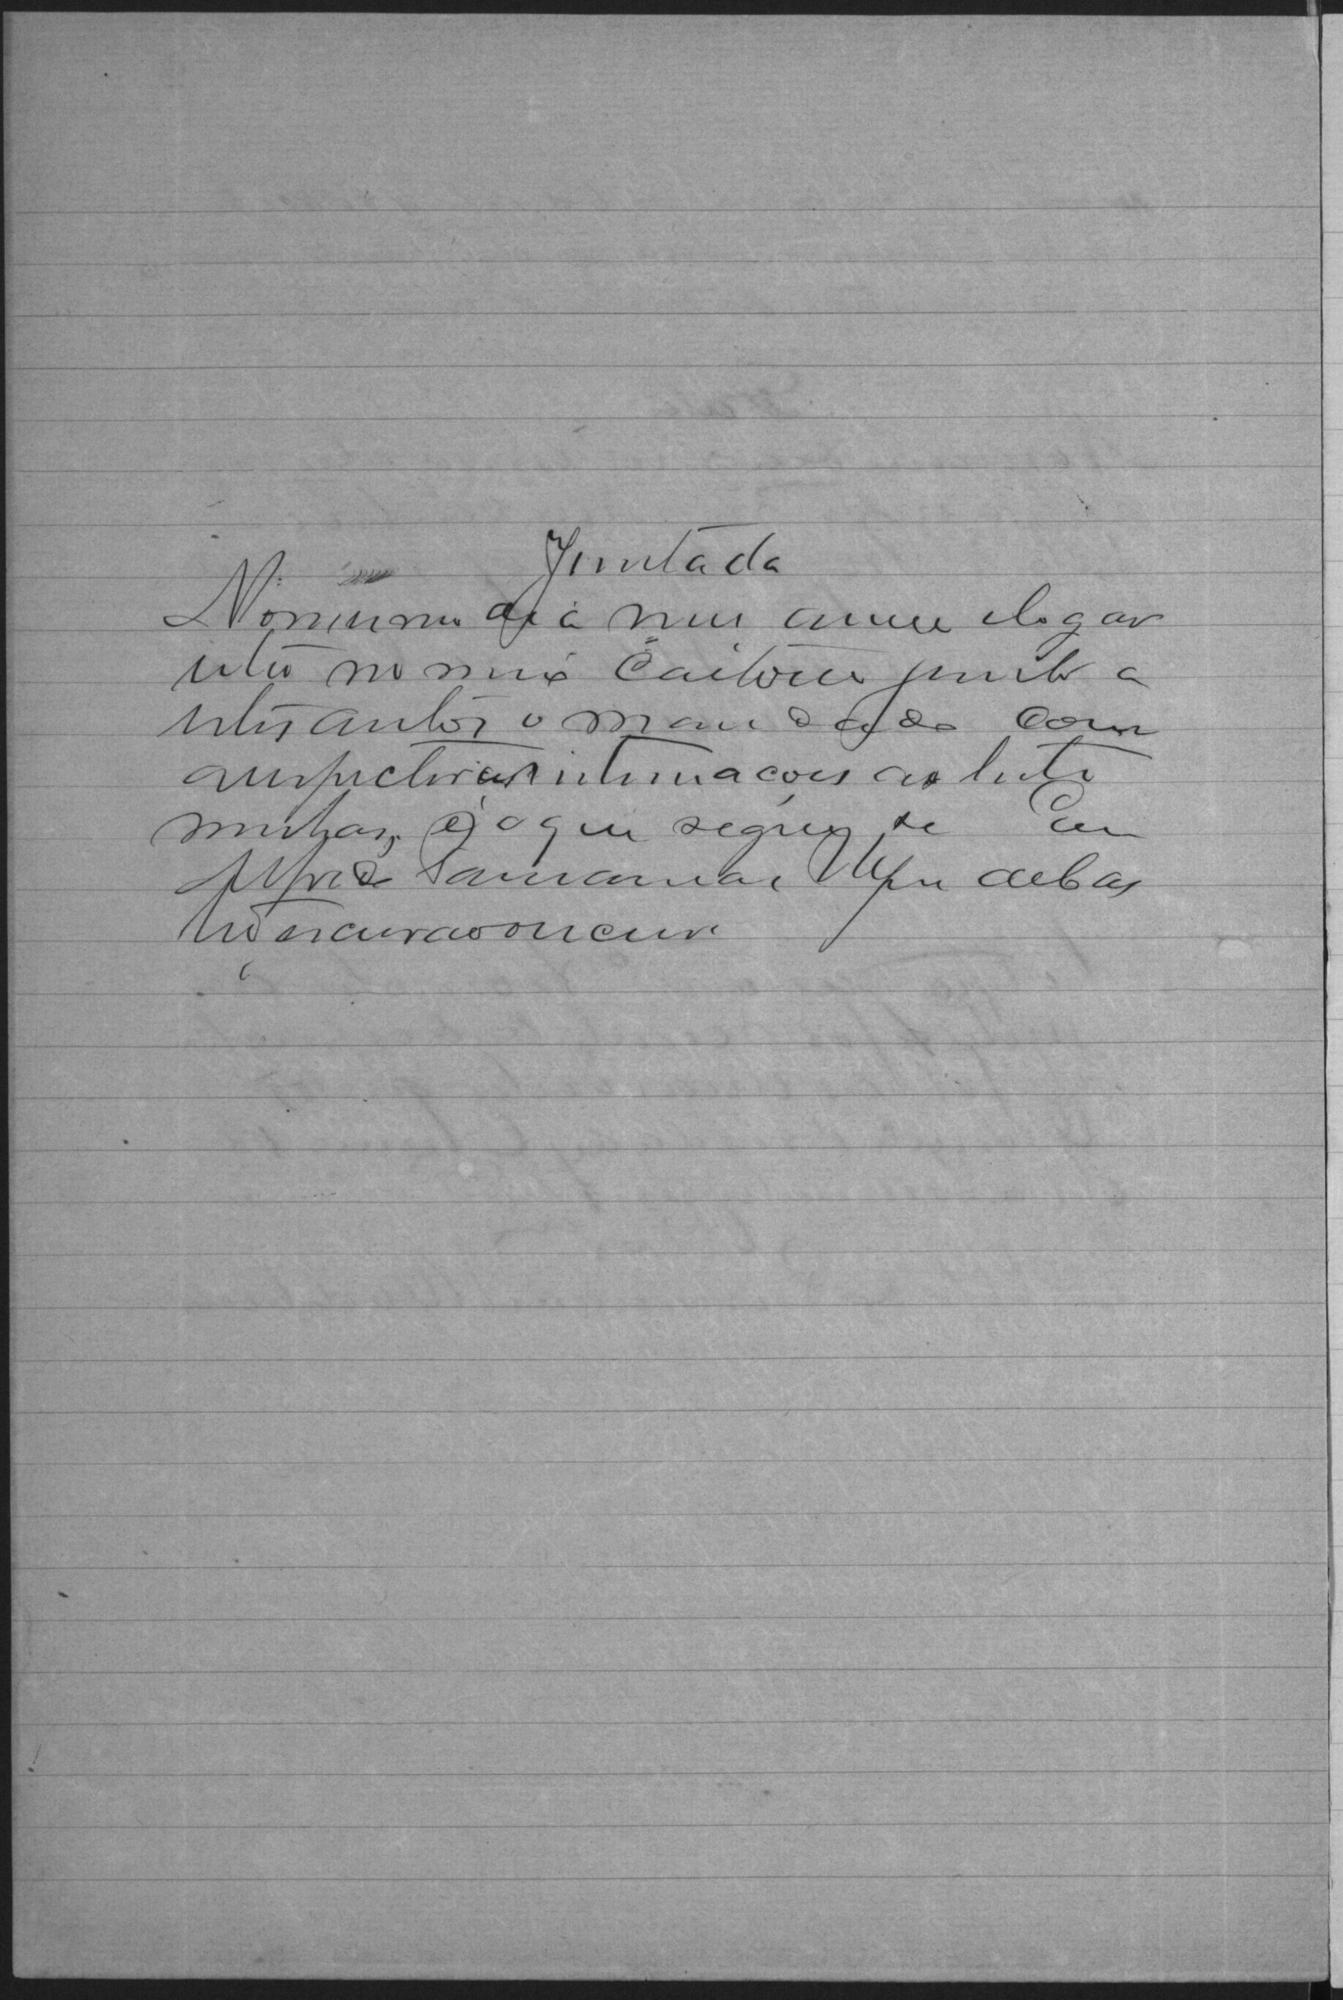 Juntada
No mesmo dia mez anno e logar
esta no meu Cartorio junto a
estes autos o mandado com
as respectivas intimações as teste
munhas, é o que segue, se Eu
Alfredo
escrivão o escrevi